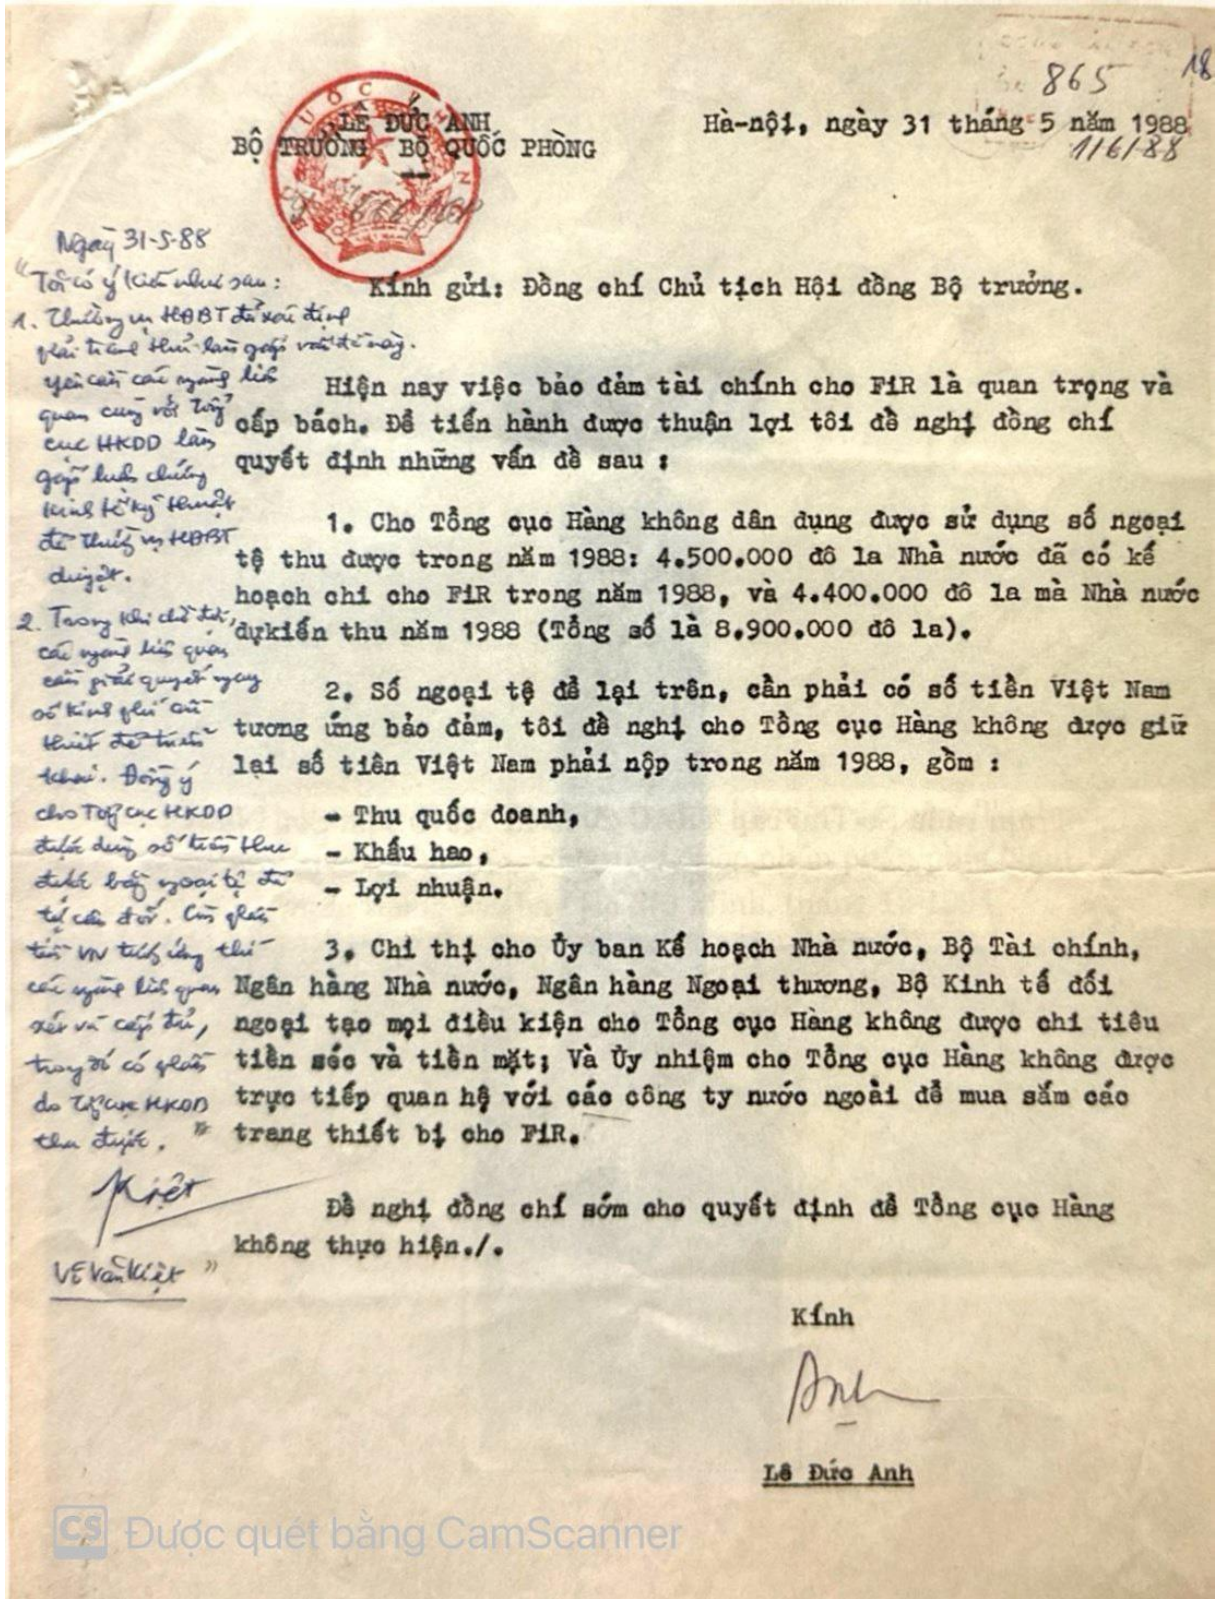 18
865
LÊ ĐỨC ANH
BỘ TRƯỞNG BỘ QUỐC PHÒNG
Hà-nội, ngày 31 tháng 5 năm 1988
1/6/88
Ngày 31-5-88
"Tôi có ý kiến như sau:
1. Thường vụ HĐBT đã xác định
phải tranh thủ làm gấp vấn đề này.
Yêu cầu các ngành liên
quan cùng với Tổng
cục HKDD làm
gấp luận chứng
kinh tế kỹ thuật
để thường vụ HĐBT
duyệt.
2. Trong khi chờ đợi,
các ngành liên quan
cần giải quyết ngay
số kinh phí cần
thiết để triển
khai. Đồng ý
cho Tổng cục HKDD
được dùng số tiền thu
được bằng ngoại tệ để
tự cân đối. Còn phần
tiền VN tương ứng thì
các ngành liên quan
xét và cấp đủ,
trong đó có phần
do Tổng cục HKDD
thu được. "
Kiệt
Võ Văn Kiệt "
Kính gửi: Đồng chí Chủ tịch Hội đồng Bộ trưởng.
Hiện nay việc bảo đảm tài chính cho FiR là quan trọng và
cấp bách. Để tiến hành được thuận lợi tôi đề nghị đồng chí
quyết định những vấn đề sau :
1. Cho Tổng cục Hàng không dân dụng được sử dụng số ngoại
tệ thu được trong năm 1988: 4.500.000 đô la Nhà nước đã có kế
hoạch chi cho FiR trong năm 1988, và 4.400.000 đô la mà Nhà nước
dựkiến thu năm 1988 (Tổng số là 8.900.000 đô la).
2. Số ngoại tệ để lại trên, cần phải có số tiền Việt Nam
tương ứng bảo đảm, tôi đề nghị cho Tổng cục Hàng không được giữ
lại số tiền Việt Nam phải nộp trong năm 1988, gồm :
- Thu quốc doanh,
- Khấu hao,
- Lợi nhuận.
3. Chỉ thị cho Ủy ban Kế hoạch Nhà nước, Bộ Tài chính,
Ngân hàng Nhà nước, Ngân hàng Ngoại thương, Bộ Kinh tế đối
ngoại tạo mọi điều kiện cho Tổng cục Hàng không được chi tiêu
tiền séc và tiền mặt; Và Ủy nhiệm cho Tổng cục Hàng không được
trực tiếp quan hệ với các công ty nước ngoài để mua sắm các
trang thiết bị cho FiR.
Đề nghị đồng chí sớm cho quyết định để Tổng cục Hàng
không thực hiện./.
Kính
Anh
Lê Đức Anh
CS Được quét bằng CamScanner